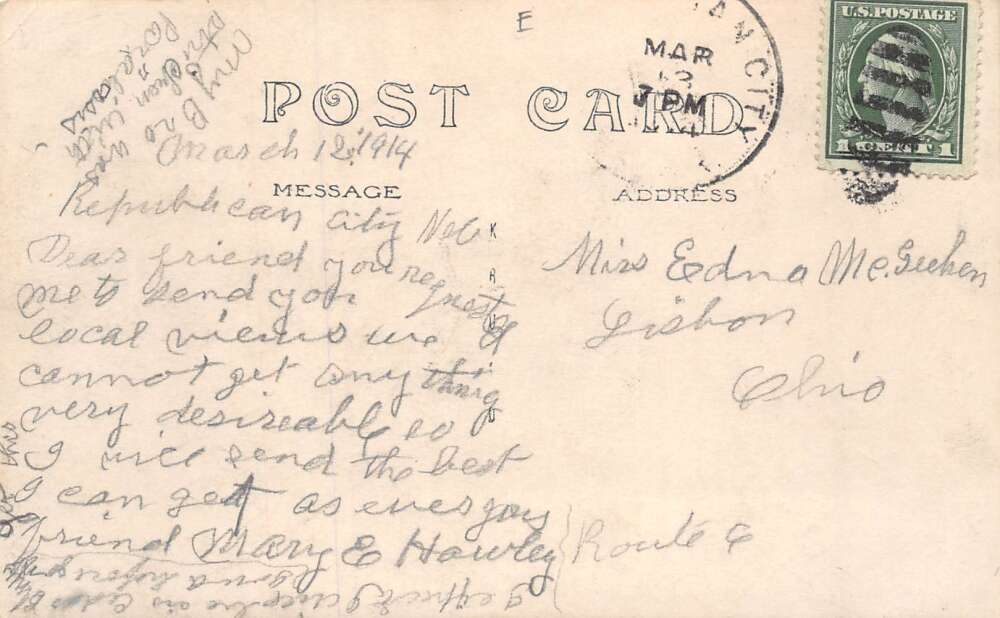 E
My B
no
was
POST CARD
AN CITY
MAR
7 PM
U.S. POSTAGE
1 CENT 1
March 12, 1914
MESSAGE
ADDRESS
Republican City Neb
Dear friend you request
me to send you
local views we
cannot get any thing
very desireable so
I will send the best
I can get as ever your
friend Mary E Hawley
Route 6
I expect
K R U G
Miss Edna McGeehen
Lisbon
Ohio